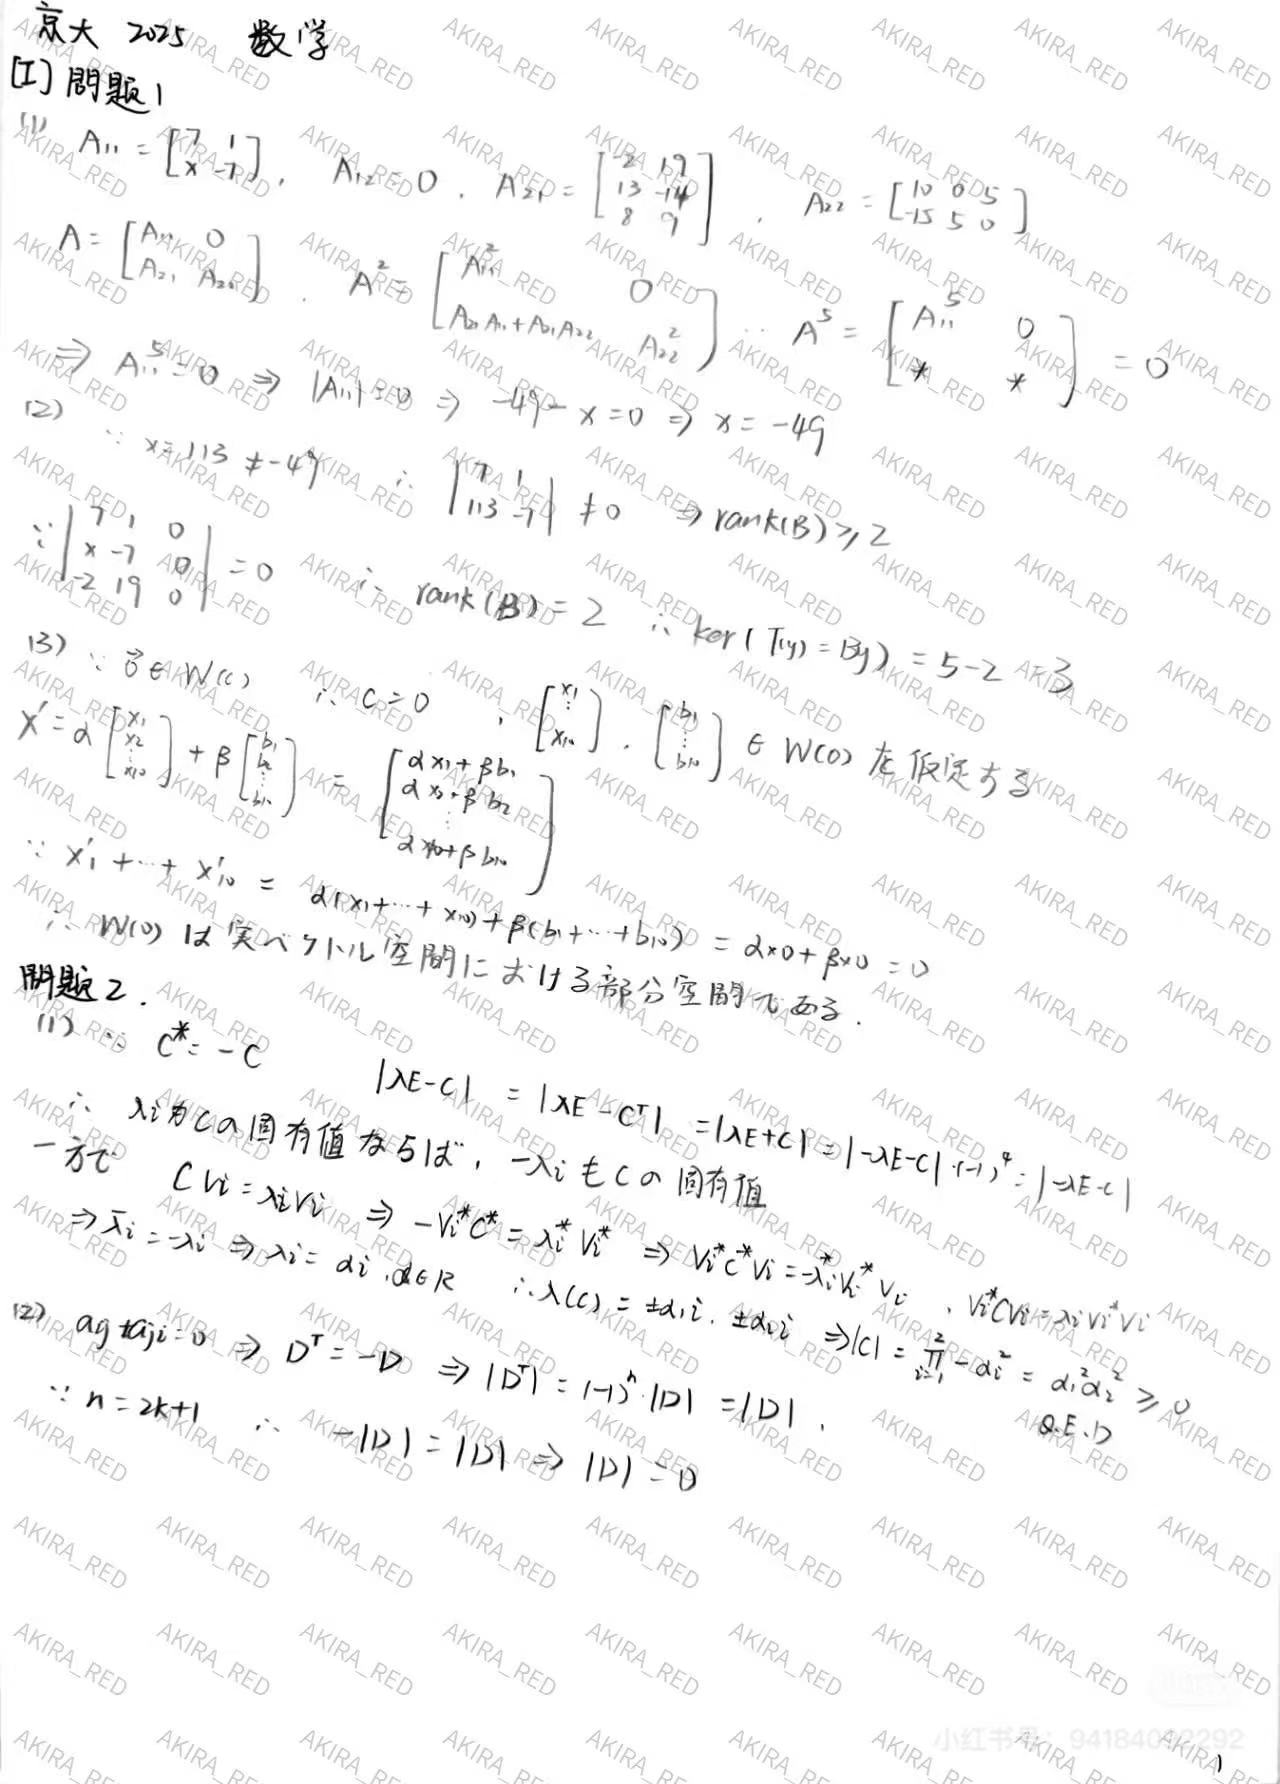 京大 2025 数学
[I] 問題1
(1) A₁₁ = [7 1; x -7], A₁₂ = 0, A₂₁ = [-2 19; 13 -14; 8 9], A₂₂ = [10 0 5; -15 5 0]
A = [A₁₁ 0; A₂₁ A₂₂], A² = [A₁₁² 0; A₂₁A₁₁+A₂₁A₂₂ A₂₂²] ∵ A⁵ = [A₁₁⁵ 0; * *] = 0
⇒ A₁₁⁵ = 0 ⇒ |A₁₁| = 0 ⇒ -49 - x = 0 ⇒ x = -49
(2) ∵ x = 113 ≠ -49 ∴ |7 1; 113 -7| ≠ 0 ⇒ rank(B) ≥ 2
∵ |7 1 0; x -7 0; -2 19 0| = 0 ∴ rank(B) = 2 ∴ ker(T(y) = By) = 5-2 = 3
(3) ∵ 0⃗ ∈ W(c) ∴ C = 0, [x₁; ⋮; x₁₀], [b₁; ⋮; b₁₀] ∈ W(0) を仮定する
X' = α[x₁; x₂; ⋮; x₁₀] + β[b₁; b₂; ⋮; b₁₀] = [αx₁+βb₁; αx₂+βb₂; ⋮; αx₁₀+βb₁₀]
∵ X'₁ + ⋯ + X'₁₀ = α(x₁+⋯+x₁₀) + β(b₁+⋯+b₁₀) = α×0 + β×0 = 0
∴ W(0) は実ベクトル空間における部分空間である.
問題2.
(1) ∵ C* = -C |λE-C| = |λE-Cᵀ| = |λE+C| = |-λE-C|·(-1)⁴ = |-λE-C|
∴ λi为Cの固有値ならば, -λiもCの固有値
一方で CVi = λiVi ⇒ -Vi*C* = λi*Vi* ⇒ Vi*C*Vi = -λi*Vi*Vi, Vi*CVi = λiVi*Vi
⇒ λ̄i = -λi ⇒ λi = αi, α∈R ∴ λ(C) = ±α₁i, ±α₂i ⇒ |C| = ∏_{i=1}^{2} -αi² = α₁²α₂² ≥ 0
Q.E.D
(2) aij+aji = 0 ⇒ Dᵀ = -D ⇒ |Dᵀ| = (-1)ⁿ·|D| = |D|,
∵ n = 2k+1 ∴ -|D| = |D| ⇒ |D| = 0
小红书号: 94184092292
1
AKIRA_RED